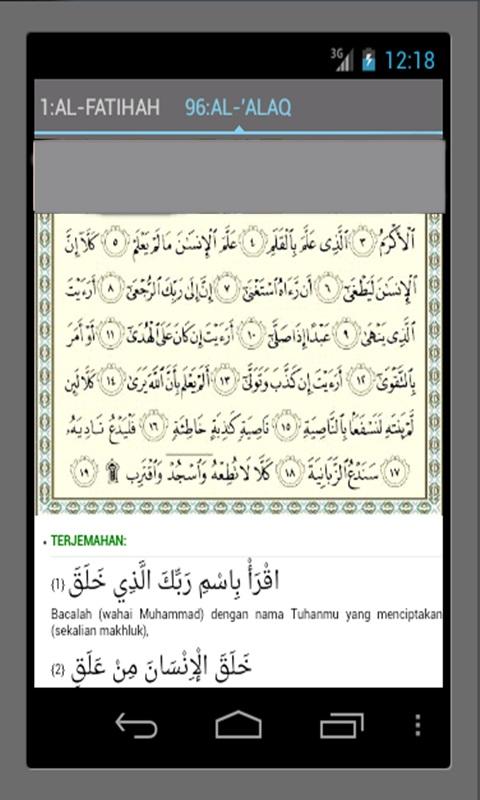 3G 12:18
1:AL-FATIHAH 96:AL-'ALAQ
ٱلْأَكْرَمُ ٣ ٱلَّذِى عَلَّمَ بِٱلْقَلَمِ ٤ عَلَّمَ ٱلْإِنسَٰنَ مَا لَمْ يَعْلَمْ ٥ كَلَّآ إِنَّ
ٱلْإِنسَٰنَ لَيَطْغَىٰٓ ٦ أَن رَّءَاهُ ٱسْتَغْنَىٰٓ ٧ إِنَّ إِلَىٰ رَبِّكَ ٱلرُّجْعَىٰٓ ٨ أَرَءَيْتَ
ٱلَّذِى يَنْهَىٰ ٩ عَبْدًا إِذَا صَلَّىٰٓ ١٠ أَرَءَيْتَ إِن كَانَ عَلَى ٱلْهُدَىٰٓ ١١ أَوْ أَمَرَ
بِٱلتَّقْوَىٰٓ ١٢ أَرَءَيْتَ إِن كَذَّبَ وَتَوَلَّىٰٓ ١٣ أَلَمْ يَعْلَم بِأَنَّ ٱللَّهَ يَرَىٰ ١٤ كَلَّا لَئِن
لَّمْ يَنتَهِ لَنَسْفَعًۢا بِٱلنَّاصِيَةِ ١٥ نَاصِيَةٍ كَٰذِبَةٍ خَاطِئَةٍ ١٦ فَلْيَدْعُ نَادِيَهُۥ
١٧ سَنَدْعُ ٱلزَّبَانِيَةَ ١٨ كَلَّا لَا تُطِعْهُ وَٱسْجُدْ وَٱقْتَرِب ۩ ١٩
• TERJEMAHAN:
(1) اقْرَأْ بِاسْمِ رَبِّكَ الَّذِي خَلَقَ
Bacalah (wahai Muhammad) dengan nama Tuhanmu yang menciptakan
(sekalian makhluk),
(2) خَلَقَ الْإِنْسَانَ مِنْ عَلَقٍ